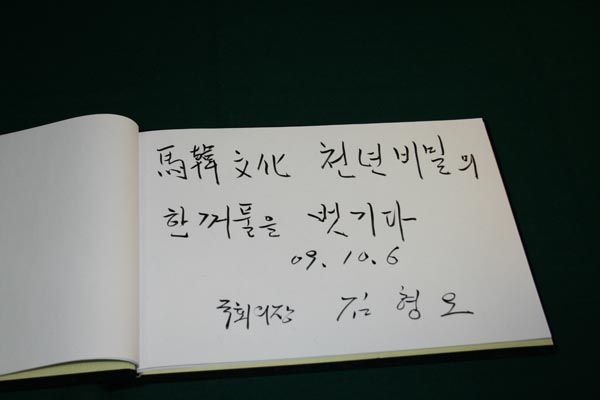 馬韓文化 천년비밀의
한꺼풀을 벗기다
09. 10. 6
국회의장 김형오